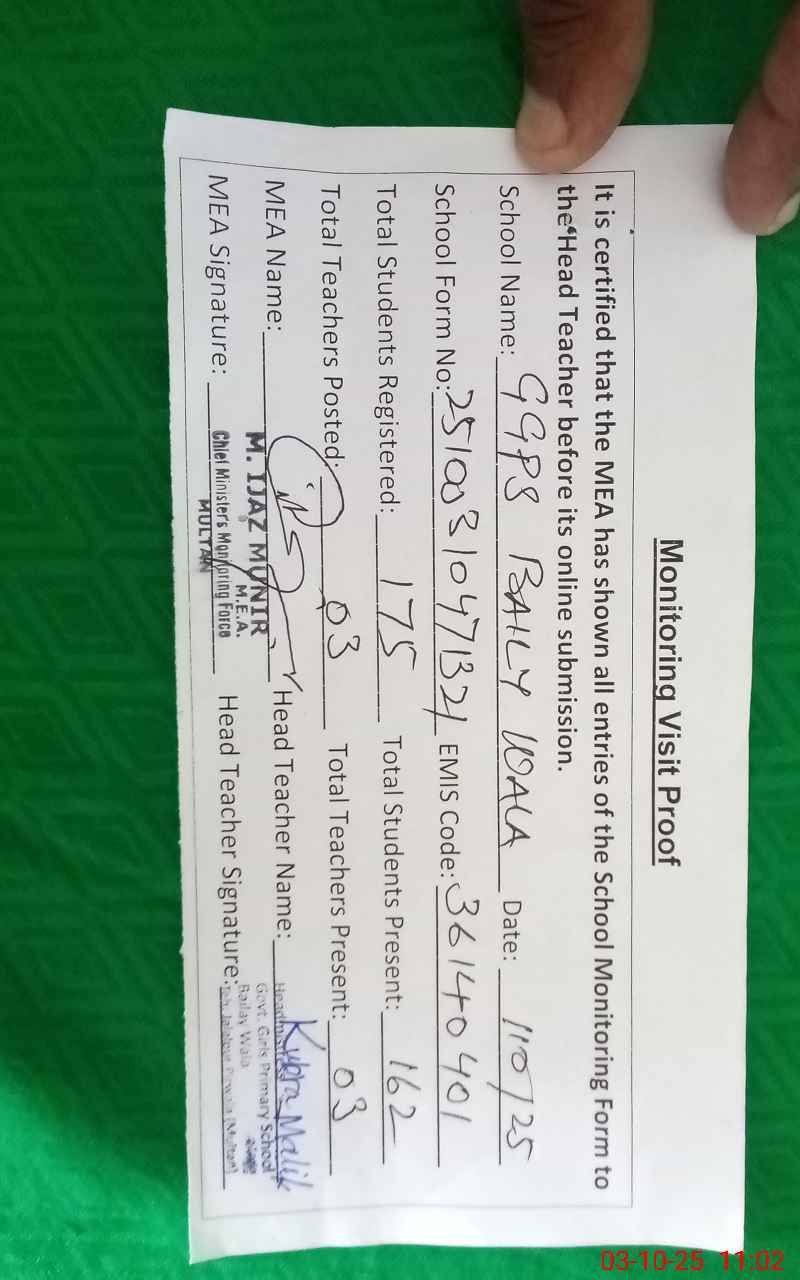 Monitoring Visit Proof
It is certified that the MEA has shown all entries of the School Monitoring Form to
the Head Teacher before its online submission.
School Name: GGPS BAILY WALA Date: 1/10/25
School Form No: 2510031047132 EMIS Code: 36140401
Total Students Registered: 175 Total Students Present: 162
Total Teachers Posted: 03 Total Teachers Present: 03
MEA Name: M. IJAZ MUNIR Head Teacher Name: Kubra Malik
M.E.A.
Headmistress
Govt. Girls Primary School
MEA Signature: Chief Minister's Monitoring Force Head Teacher Signature:
MULTAN
Bailay Wala
Teh. Jalalpur Pirwala (Multan)
03-10-25 11:02